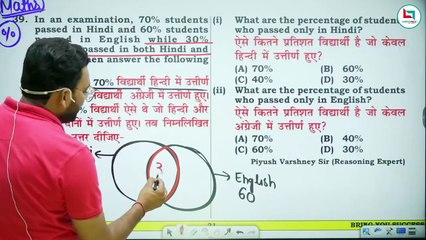 Maths
%
39. In an examination, 70% students
passed in Hindi and 60% students
in English while 30%
passed in both Hindi and
then answer the following
70% विद्यार्थी हिन्दी में उत्तीर्ण
विद्यार्थी अंग्रेजी में उत्तीर्ण
विद्यार्थी ऐसे थे जो हिन्दी और
दोनों में उत्तीर्ण थे। तब निम्नलिखित
उत्तर दीजिए-
English
60
(i) What are the percentage of students
who passed only in Hindi?
ऐसे कितने प्रतिशत विद्यार्थी है जो केवल
हिन्दी में उत्तीर्ण हुए?
(A) 70% (B) 60%
(C) 40% (D) 30%
(ii) What are the percentage of students
who passed only in English?
ऐसे कितने प्रतिशत विद्यार्थी है जो केवल
अंग्रेजी में उत्तीर्ण हुए?
(A) 70% (B) 40%
(C) 60% (D) 30%
Piyush Varshney Sir (Reasoning Expert)